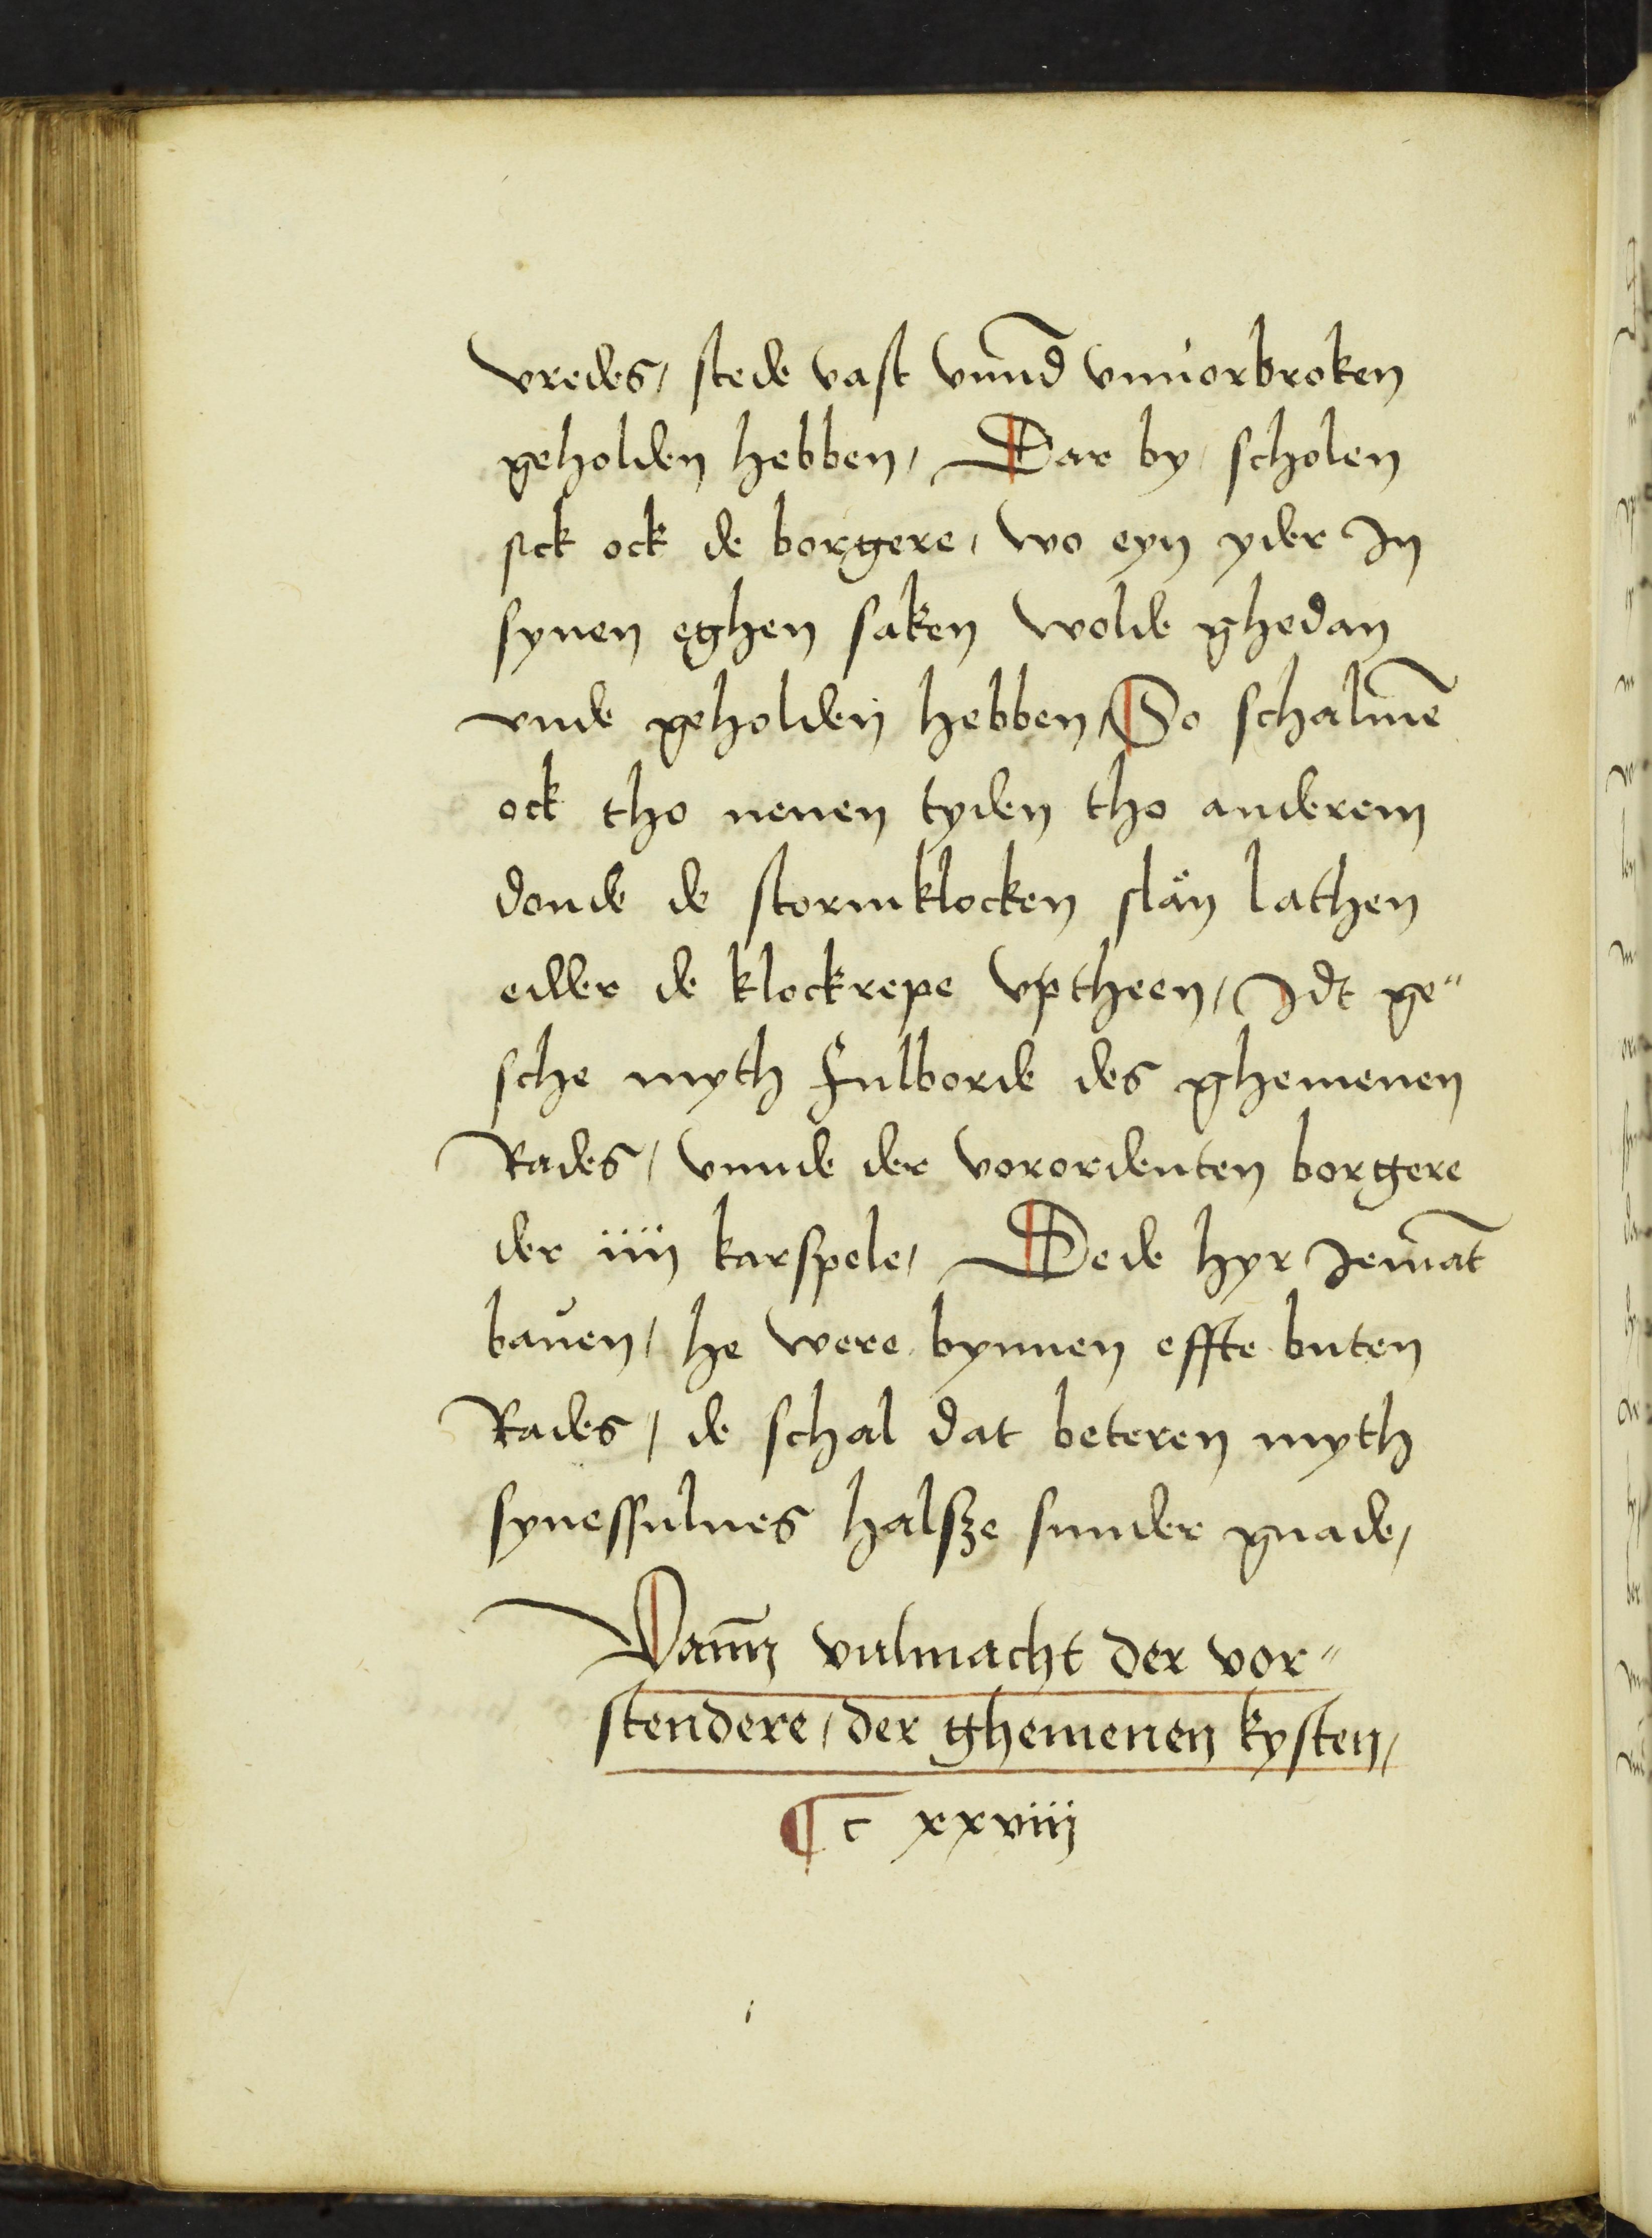 vredes, stede vast vnnd vnuorbroken
geholden hebben, Dar by scholen
sick ock de borgere, wo eyn yder In
synen eghen saken wolde ghedan
vnde geholden hebben, So schalmē
ock tho nenen tyden tho anderem
donde de stormklocken slän lathen
edder de klockrepe vptheen, Idt ge"
sche myth fulborde des ghemenen
Rades, vnnde der vorordenten borgere
der iiij karspele, Dede hyr Jemāt
bauen, he were bynnen effte buten
Rades, de schal dat beteren myth
synessulues halsze sunder gnade,
Vann vulmacht der vor"
stendere, der ghemenen kysten,
¶ c xxviiij